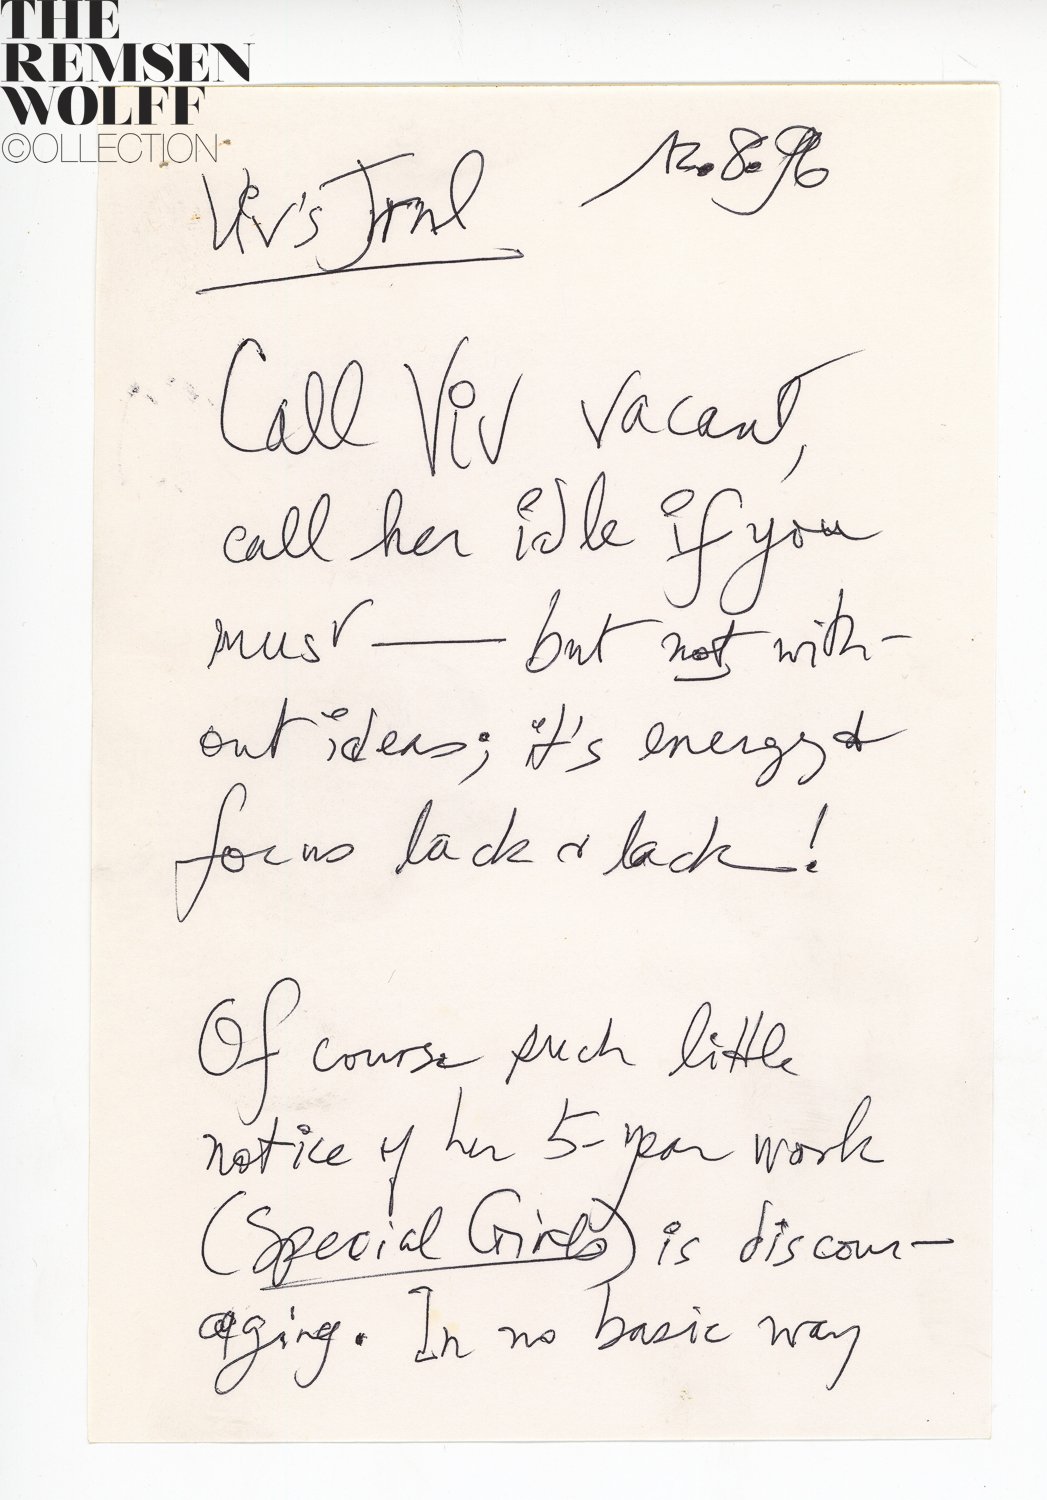 THE
REMSEN
WOLFF
©OLLECTION
Viv's Jrnl
12.8.96
Call Viv vacant,
call her idle if you
must — but not with-
out ideas; it's energy &
focus lack & lack!
Of course such little
notice of her 5-year work
(Special Girls) is discour-
aging. In no basic way